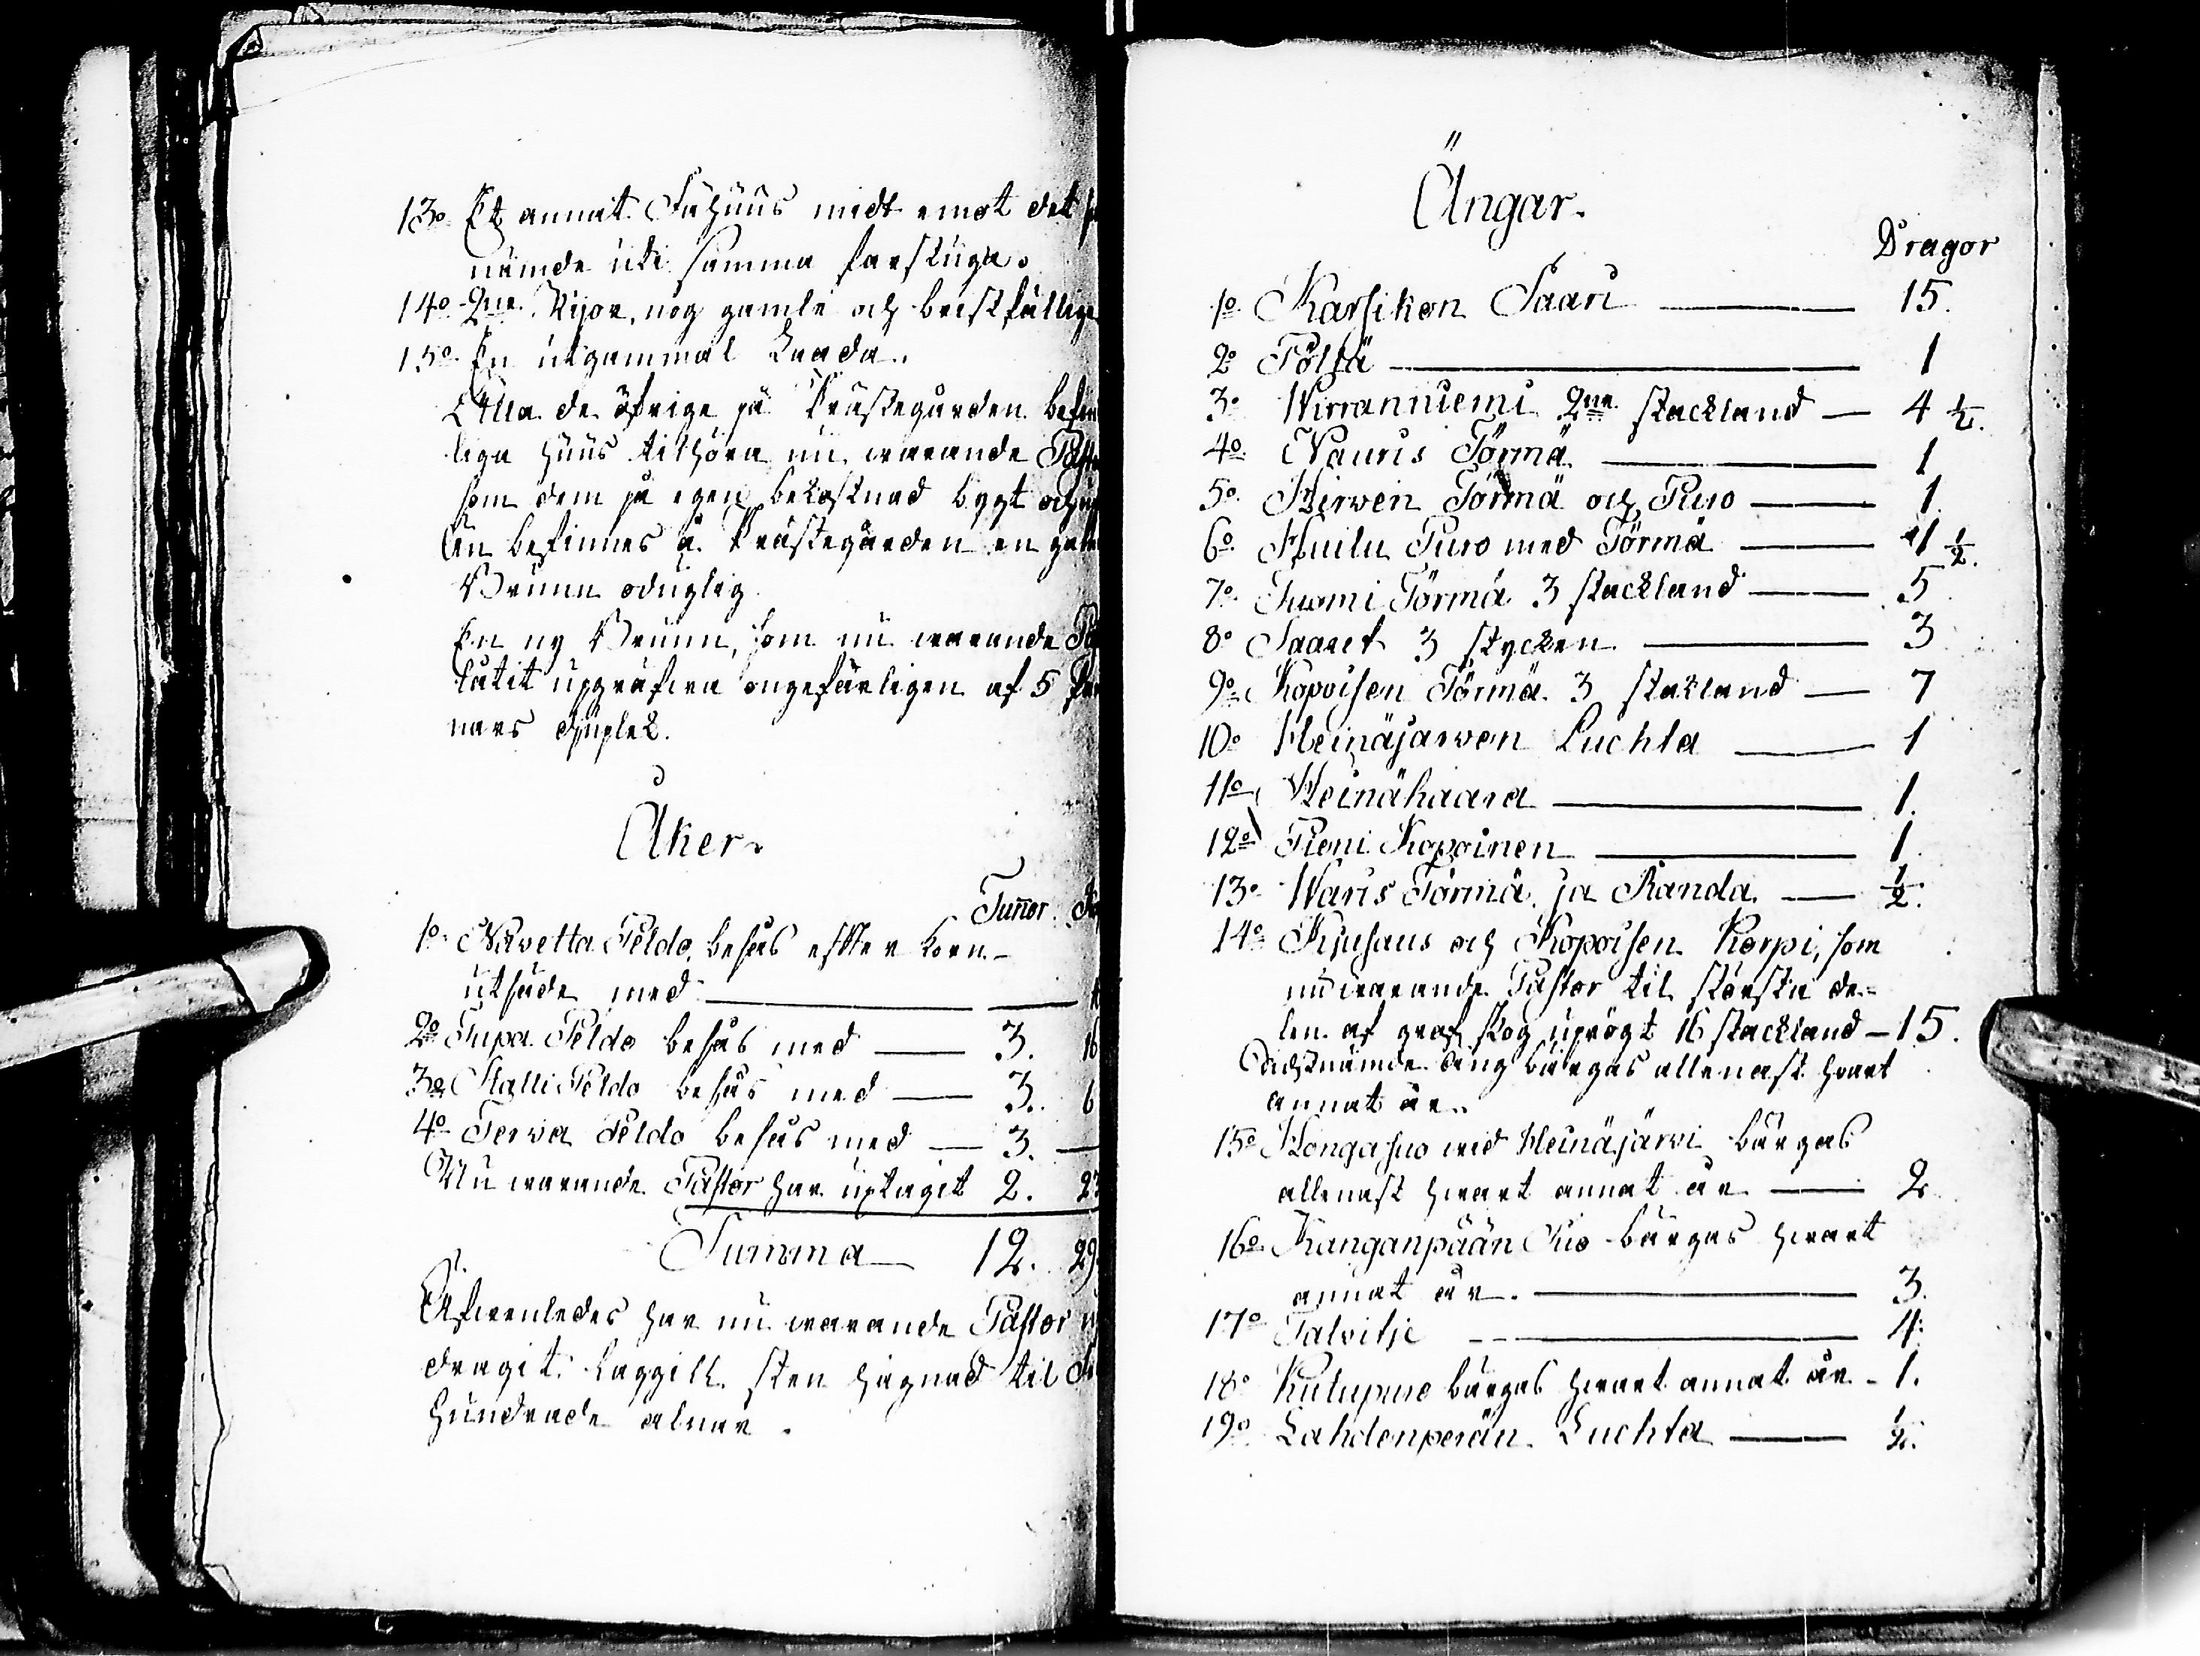 13o Et annat Fähuus midt emot det
nämde uti samma farstuga.
14o 2ne Rijor, nog gamle och bristfällige
15o En utgammal Laada.
Alla de öfrige på Prästegården befin
liga huus tilhöra nu warande Past
som dem på egen bekostnad bygt och
Än befinnes å Prästegården en gam
Brunn oduglig.
En ny Brunn, som nu warande Pa
låtit upgräfwa ongefärligen af 5 fa
nars djuplek.
Åker.
Tunnor.
1o Nawetta Peldo, besås effter korn-
utsäde med
2o Tupa Peldo besås med — 3. 16
3o Stalli Peldo besås med — 3. 6
4o Terwa Peldo besås med — 3. —
Nu warande Pastor har uptagit 2.
Summa 12. 29
Äfwenledes har nu warande Pastor
dragit laggill sten hägnad til
hundrade alnar.
Ängar.
Dragor
1o Karsikon Saari — 15.
2o Pöllä — 1
3o Wirranniemi 2ne stackland — 4 ½.
4o Nauris Törmä — 1
5o Hirwen Törmä och Puro — 1
6o Huilu Puro med Törmä — 1 ½.
7o Suomi Törmä 3 stackland — 5
8o Saaret 3 stycken — 3
9o Kopoisen Törmä 3 stakland — 7
10o Heinäjärwen Luchta — 1
11o Heinähaara — 1.
12o Pieni Kopoinen — 1
13o Waris Törmä ja Randa — ½.
14o Kiusaus och Kopoisen Korpi, som
nu warande Pastor til största de-
len af graf skog uprögt 16 stackland — 15.
Sidstnämde äng bärgas allenast hvart
annat år.
15o Honga suo wid Heinäjärwi bärgas
allenast hwart annat år — 2
16o Kanganpään Oio bärgas hwart
annat år. — 3.
17o Talwitje — 4.
18o Kulupuro bärgas hwart annat år — 1.
19o Lahdenperän Luchta — ½.